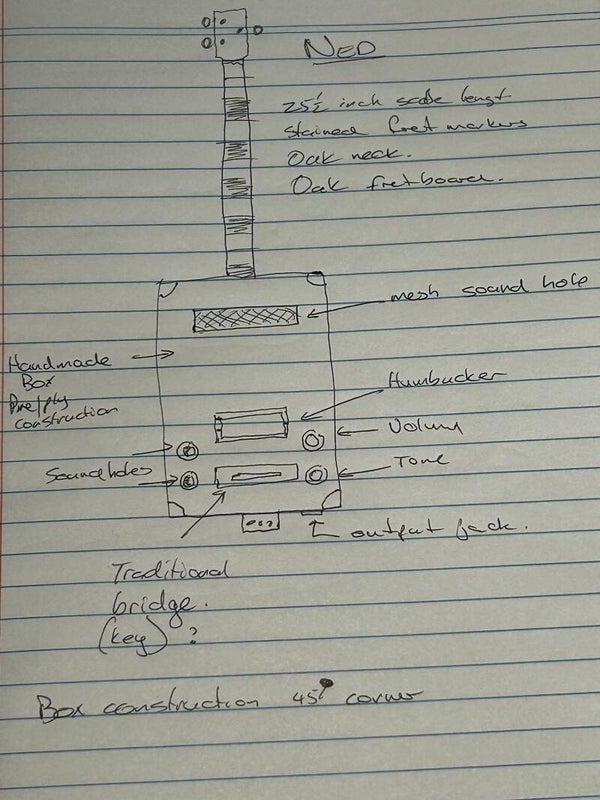 NED
25½ inch scale lengt
Stained fret markers
Oak neck.
Oak fretboard.
mesh sound hole
Handmade
Box
Pine/ply
construction
Humbucker
Volume
Tone
Soundholes
output jack.
Traditional
bridge.
(key) ?
Box construction 45° corner